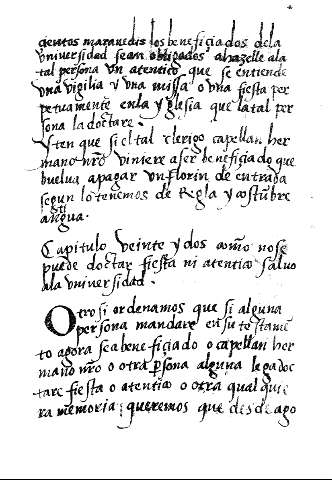 cientos maravedis los beneficiados dela
vniversidad sean obligados ahazelle ala
tal persona vn atentico que se entiende
vna vigilia y vna missa o vna fiesta per
petuamente enla yglesia que la tal per
sona la doctare.
yten que si el tal clerigo capellan her
mano nr̃o viniere aser beneficiado que
buelua apagar vn florin de entrada
segun lo tenemos de Regla y costũbre
antigua.
Capitulo veinte y dos como nose
puede doctar fiesta ni atentico salvo
ala vniversidad.
Otro si ordenamos que si alguna
persona mandare en su testamẽ
to agora sea beneficiado o capellan her
mano nr̃o o otra p̃sona alguna le pa doc
tare fiesta o atentico o otra qual quie
ra memoria; queremos que desde ago